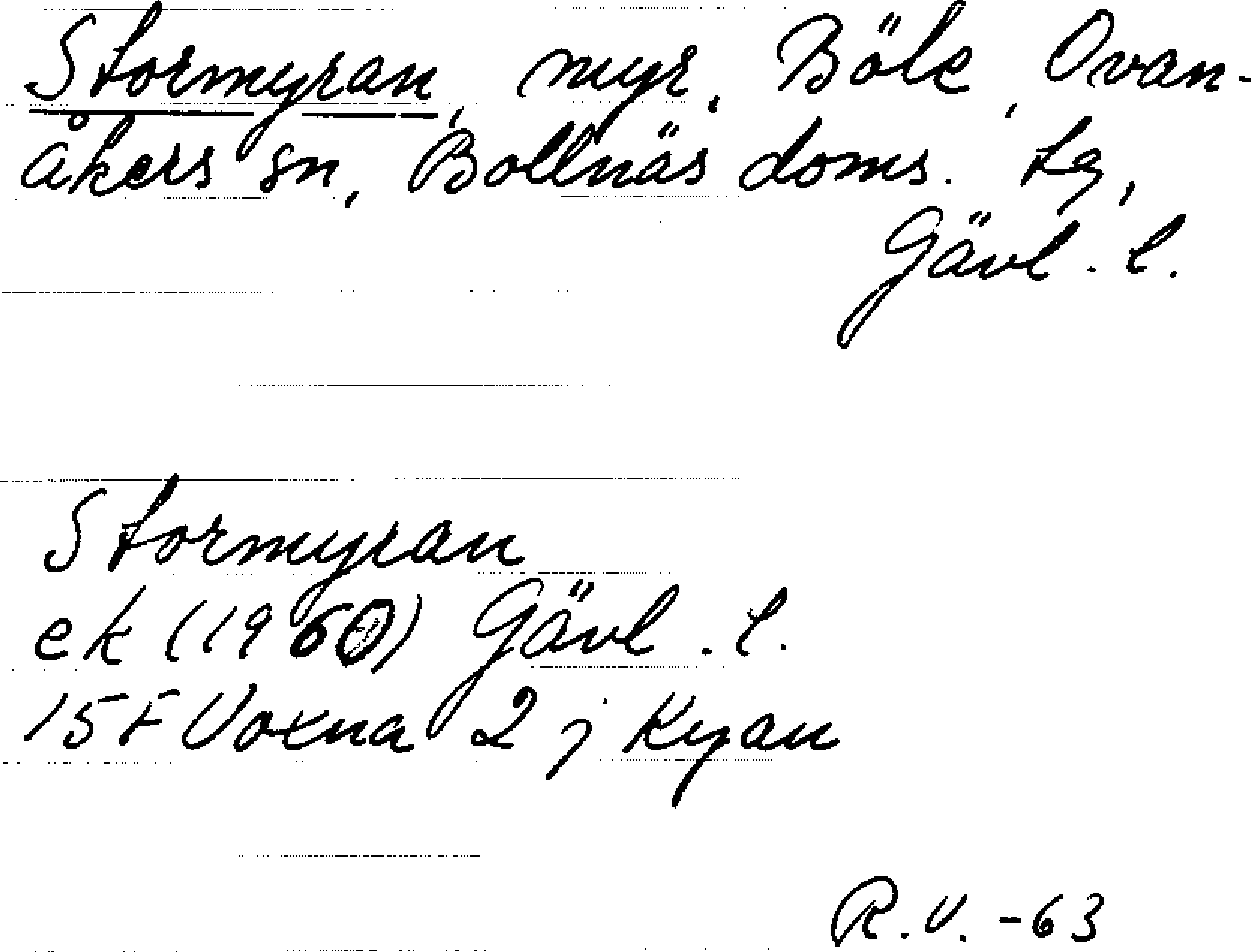 Stormyran, myr, Böle, Ovan-
åkers sn, Bollnäs doms. tg,
Gävl. l.
Stormyran
ek (1960) Gävl. l.
15F Voxna 2 j Kyan
R.V. -63